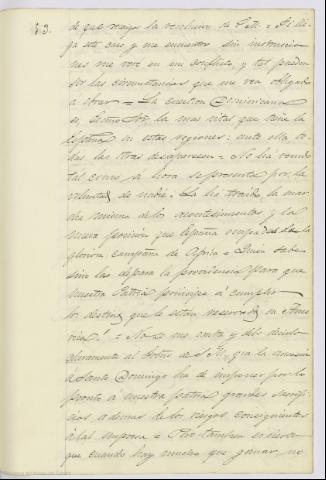 83.
de que venga la resolucion de . Si lle-
ga este caso y me encuentro sin instruccio-
nes me veré en un conflicto, y tal pueden
ser las circunstancias que me vea obligado
á obrar = La cuestion Dominicana
es, Señor, la mas vital que tiene la
España en estas regiones: ante ella to-
das las otras desaparecen = No há venido
tal como á hora se presenta por la
voluntad de nadie: La há traido la mar-
cha misma de los acontecimientos y la
nueva posicion que España ocupa desde la
gloriosa campaña de Africa = Quien sabe
sin las depara la providencia para que
nuestra Patria principie á cumplir
los destinos que le están reservados en Ame-
rica! = No se me oculta y debo decirlo
claramente al Gobierno de S. M. que la anexion
de Santo Domingo ha de imponer por lo
pronto á nuestra patria grandes sacrifi-
cios ademas de los riesgos consiguientes
á tal empresa = Pero tambien es cierto
que cuando hay mucho que ganar, no